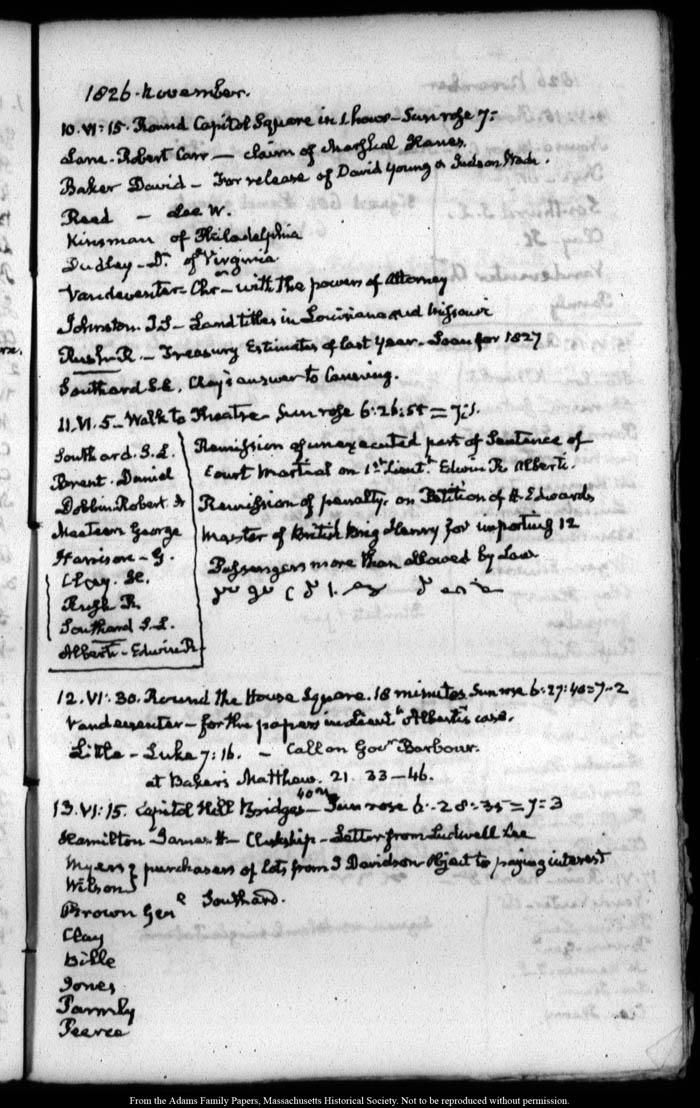 1826. November.
10. VI: 15. Round Capitol Square in 1. hour – Sun rose 7:
Lane. Robert Carr — claim of Marshal Hanes.
Baker David – For release of David Young & Judson Wade.
Reed – Lee W.
Kinsman of Philadelphia
Dudley – Dr. of Virginia.
Vandeventer – Chr – with the powers of Attorney
Johnston. J.S – Land titles in Louisiana and Missouri
Rush. R. – Treasury Estimates of last Year – Loan for 1827
Southard S.L. Clay's answer to Canning.
11. VI. 5 – Walk to Theatre – Sun rose 6:26:55 = 7:1.
Southard. S.L.
Brent. Daniel
Dobbin Robert
George
Harrison – G.
Clay. H.
Rush R.
Southard S.L.
Alberti – Edwin R.
Remission of unexecuted part of Sentence of
Court Martial on 1st Lieut. Edwin R. Alberti.
Remission of penalty, on Petition of H. Edwards
Master of British Brig Henry for importing 12
Passengers more than allowed by Law.
12. VI: 30. Round the House Square. 18 minutes. Sun rose 6:27:48 = 7–2
Vandeventer – for the papers in Lieut. Alberti's case.
Little – Luke 7: 16. – Call on Govr. Barbour.
at Baker's Matthew. 21. 33–46.
13. VI: 15. Capitol Hill Bridges – 40m Sun rose 6:28:35 = 7:3
Hamilton James H – Clerkship – Letter from Ludwell Lee
Myers & purchasers of lots from J Davidson object to paying interest
Wilson
Brown Genl Southard.
Clay
Jones
Parmly
Pearce
From the Adams Family Papers, Massachusetts Historical Society. Not to be reproduced without permission.